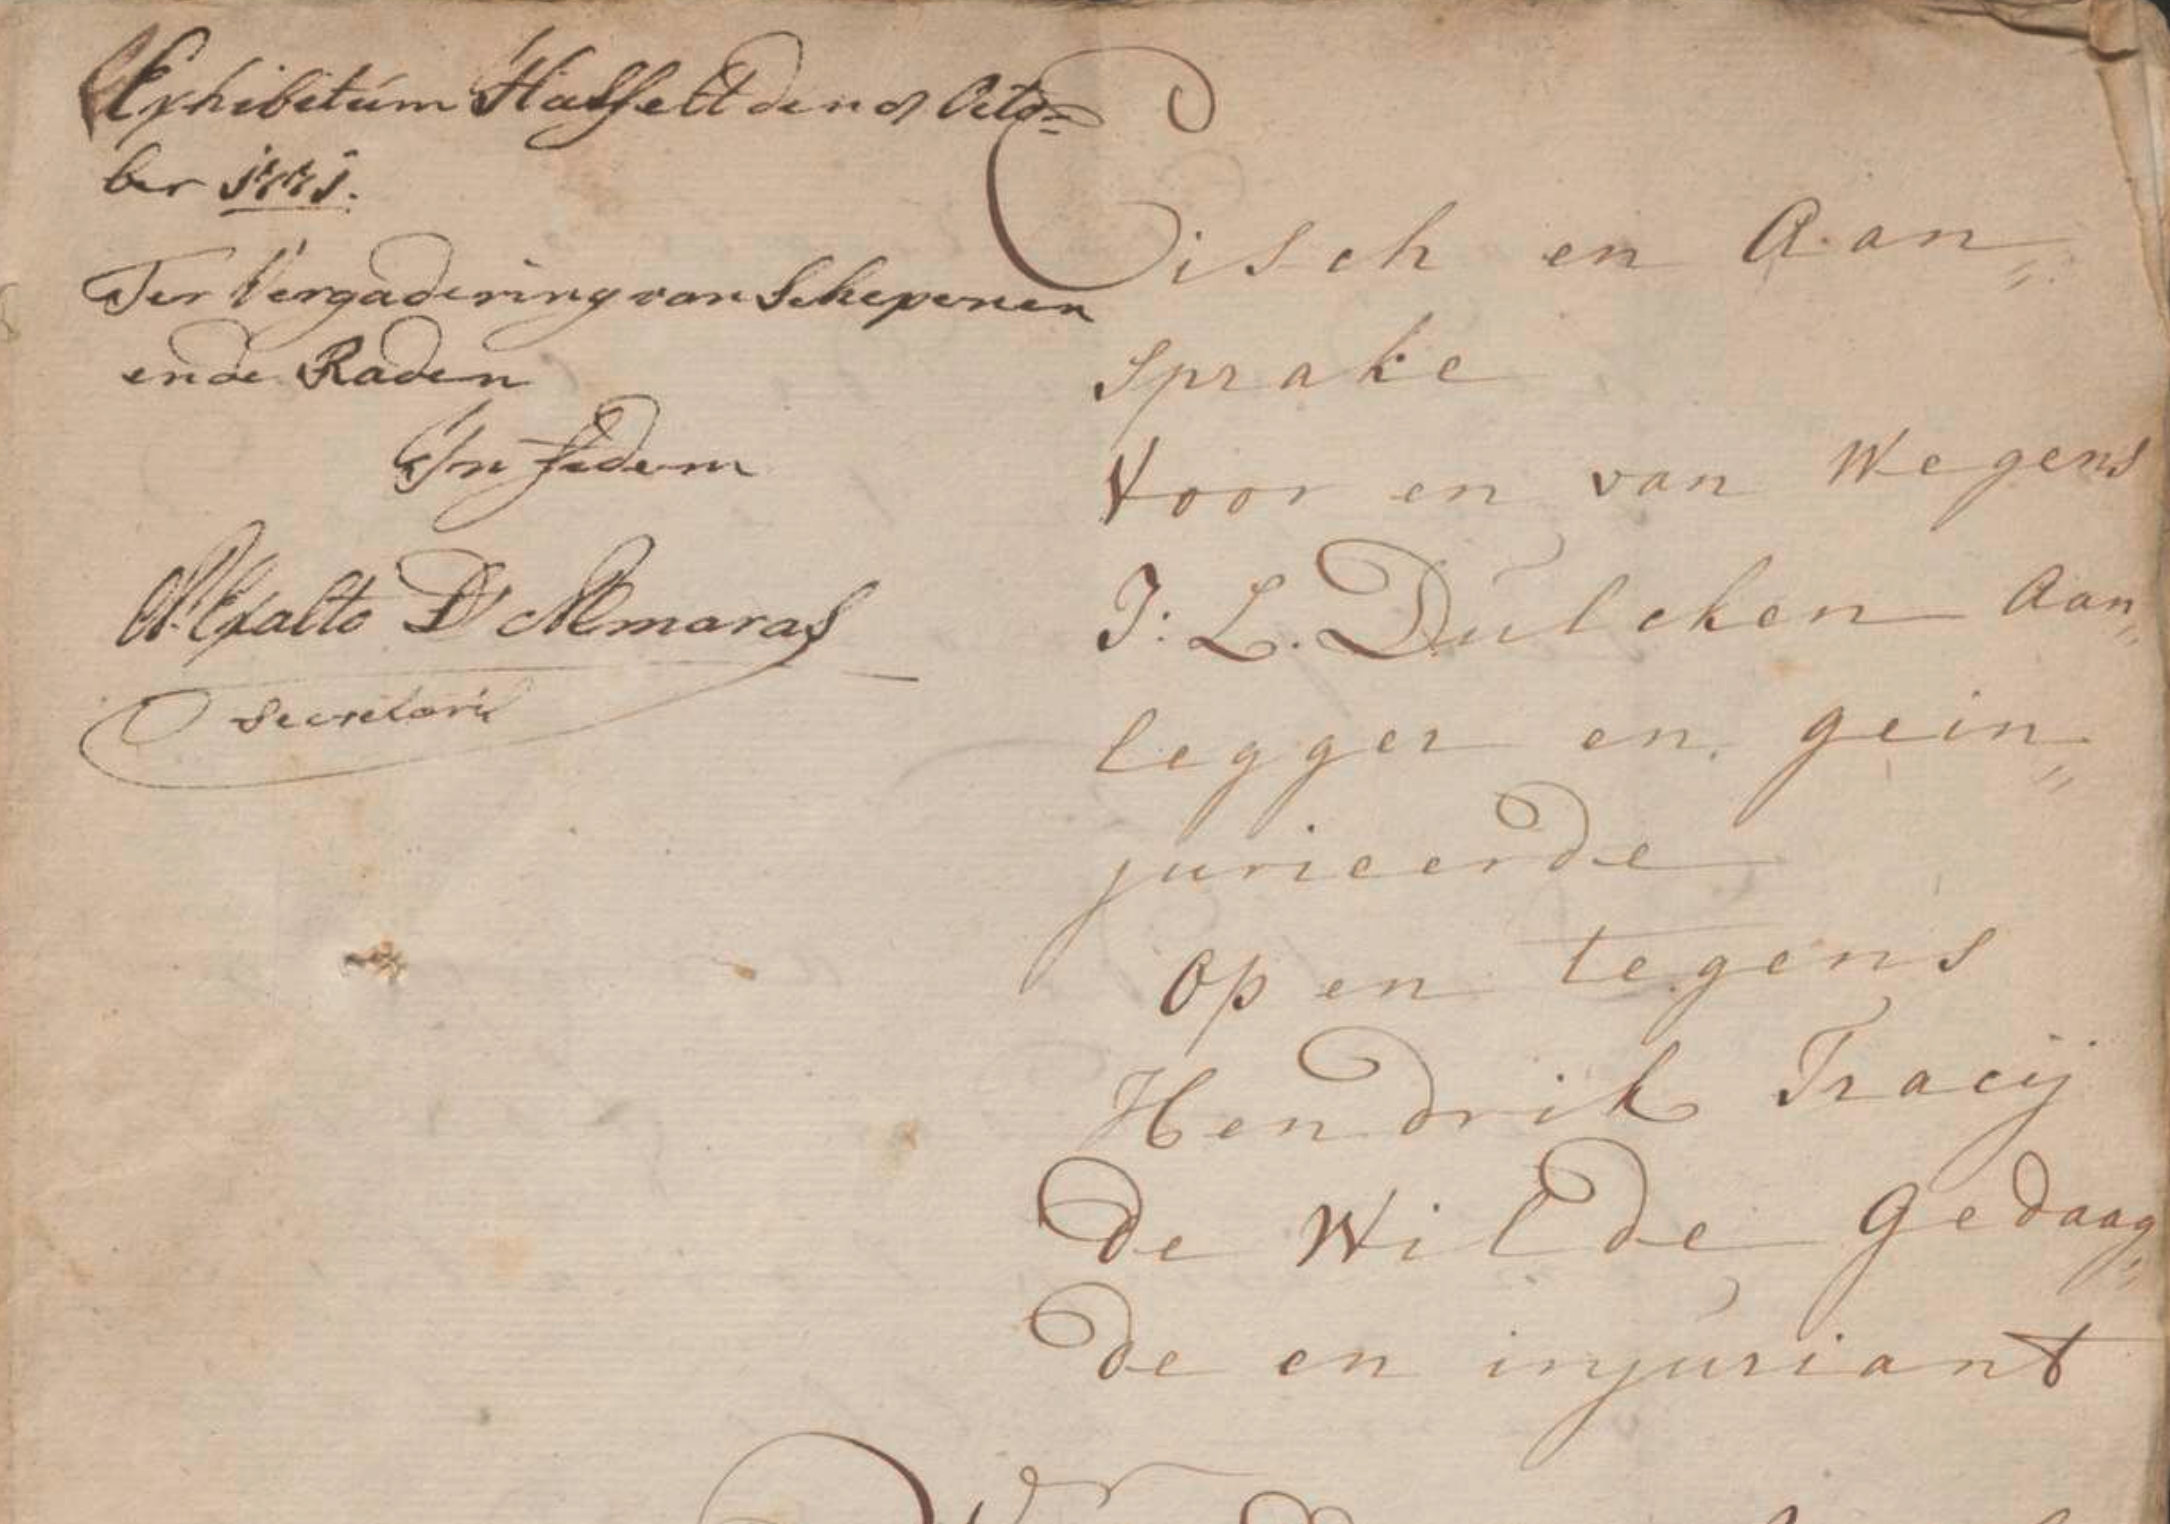 Exhibitum Hasselt den 8 Octo=
ber 1771.
Ter Vergadering van Schepenen
ende Raden
In fidem
Exalto D'Almaras
secretaris
Eisch en Aan„
sprake
Voor en van Wegens
J: L. Dulcken Aan„
legger en gein„
jurieerde
op en tegens
Hendrik Tracij
de Wilde gedaag„
de en injuriant